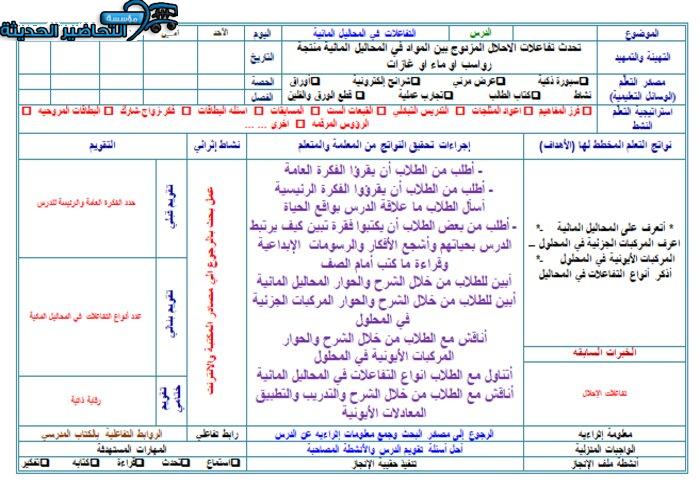 مؤسسة
التحاضير الحديثة
الموضوع
الدرس
التفاعلات في المحاليل المائية
اليوم
الأحد
التهيئة والتمهيد
تحدث تفاعلات الاحلال المزدوج بين المواد في المحاليل المائية منتجة
رواسب او ماء او غازات
التاريخ
مصادر التعلم
(الوسائل التعليمية)
سبورة ذكية عرض مرئي شرائح إلكترونية أوراق
نشاط كتاب الطالب تجارب عملية قطع الورق والفلين
الحصة
الفصل
استراتيجية التعلم
النشط
فرز المفاهيم اعواد المثلجات التدريس التبادلي القبعات الست المسابقات اسئلة البطاقات فكر-زواج-شارك البطاقات المروحيه
الرؤوس المرقمه اخرى ... ...
نواتج التعلم المخطط لها (الأهداف)
إجراءات تحقيق النواتج من المعلمة والمتعلم
نشاط إثرائي
التقويم
* أتعرف على المحاليل المائية -*
اعرف المركبات الجزئية في المحلول –
المركبات الأيونية في المحلول -*
أذكر أنواع التفاعلات في المحاليل
الخبرات السابقه
تفاعلات الإحلال
- أطلب من الطلاب أن يقرؤا الفكرة العامة
- أطلب من الطلاب أن يقرؤوا الفكرة الرئيسية
أسأل الطلاب ما علاقة الدرس بواقع الحياة
- أطلب من بعض الطلاب أن يكتبوا فقرة تبين كيف يرتبط
الدرس بحياتهم وأشجع الأفكار والرسومات الإبداعية
وقراءة ما كتب أمام الصف
أبين للطلاب من خلال الشرح والحوار المحاليل المائية
أبين للطلاب من خلال الشرح والحوار المركبات الجزئية
في المحلول
أناقش مع الطلاب من خلال الشرح والحوار
المركبات الأيونية في المحلول
أتناول مع الطلاب انواع التفاعلات في المحاليل المائية
أناقش مع الطلاب من خلال الشرح والتدريب والتطبيق
المعادلات الأيونية
عمل بحث بالرجوع الي مصادر المكتبة والانترنت
تقويم قبلي
حدد الفكرة العامة والرئيسة للدرس
تقويم بنائي
عدد أنواع التفاعلات في المحاليل المائية
تقويم
ختامي
رقابة ذاتية
معلومة إثرائيه
الرجوع إلى مصادر البحث وجمع معلومات إثرائيه عن الدرس
رابط تفاعلي
الروابط التفاعلية بالكتاب المدرسي
الواجبات المنزلية
أحل أسئلة تقويم الدرس والأنشطة المصاحبة
المهارات المستهدفة
أنشطة ملف الإنجاز
تنفيذ حقيبة الإنجاز
استماع تحدث قراءة كتابه تفكير